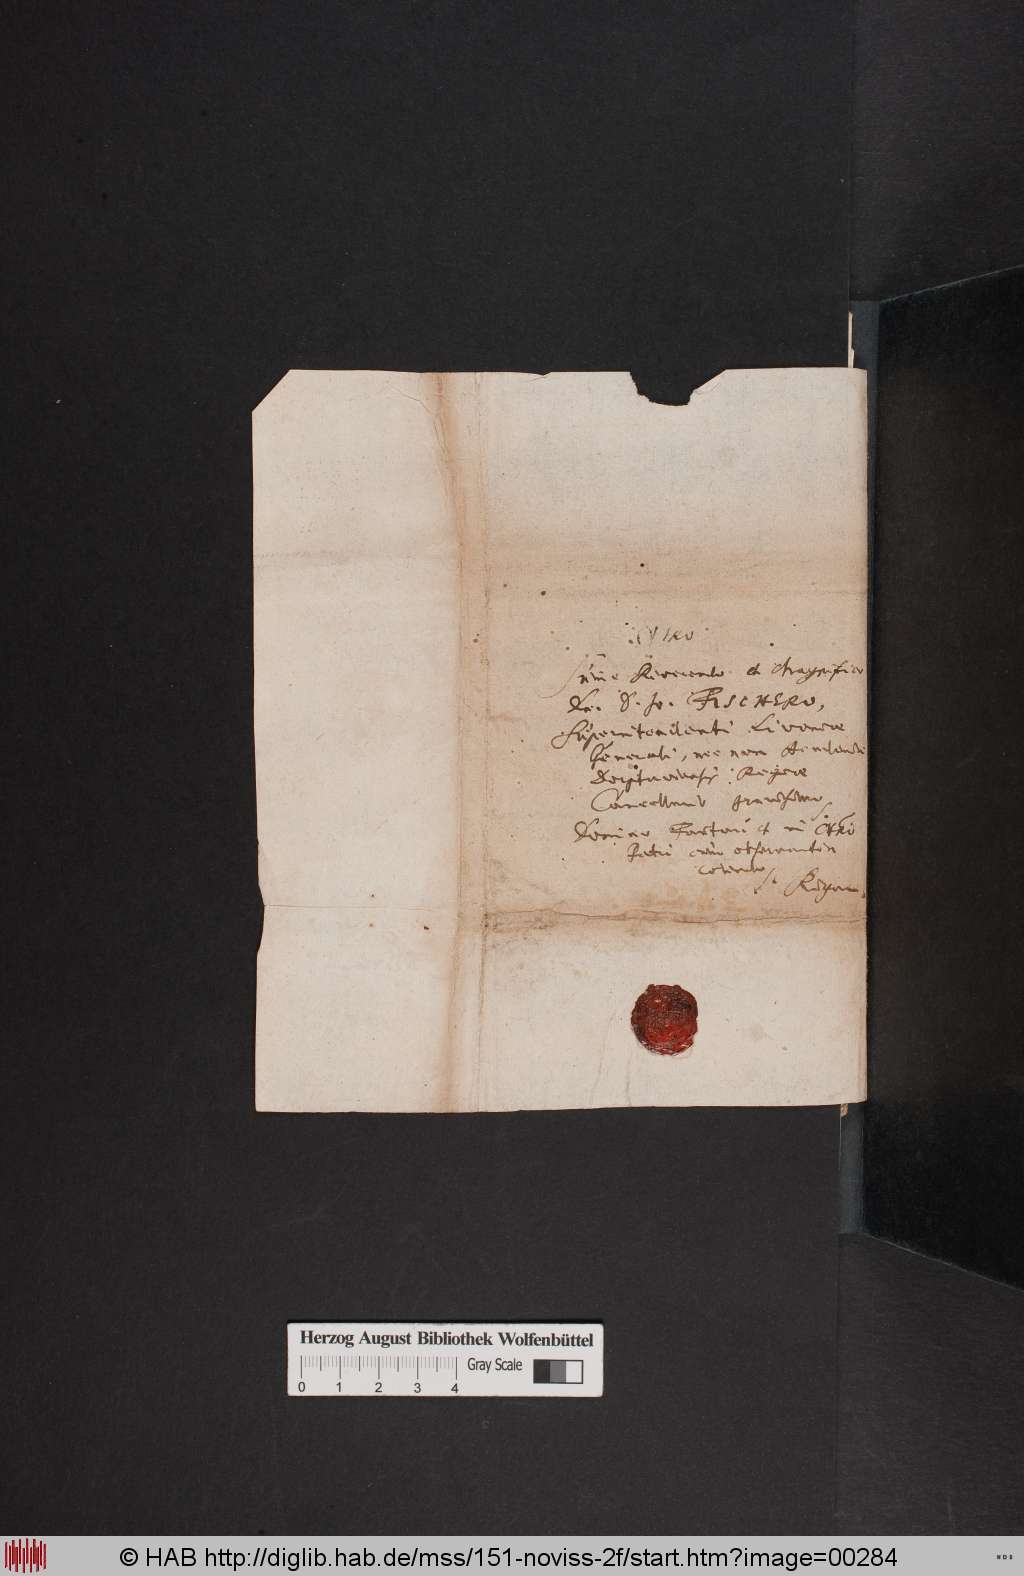 Viro
Summe Reverendo et Magnifico
Dn. D. Jo. FISCHERO,
Superintendenti Livoniae
Generali, nec non Academiae
Dorptaviensis Regiae
Cancellario
Domino et in Chro
Patri observantia
colendo
Rigam.
Herzog August Bibliothek Wolfenbüttel
Gray Scale
0 1 2 3 4
© HAB http://diglib.hab.de/mss/151-noviss-2f/start.htm?image=00284